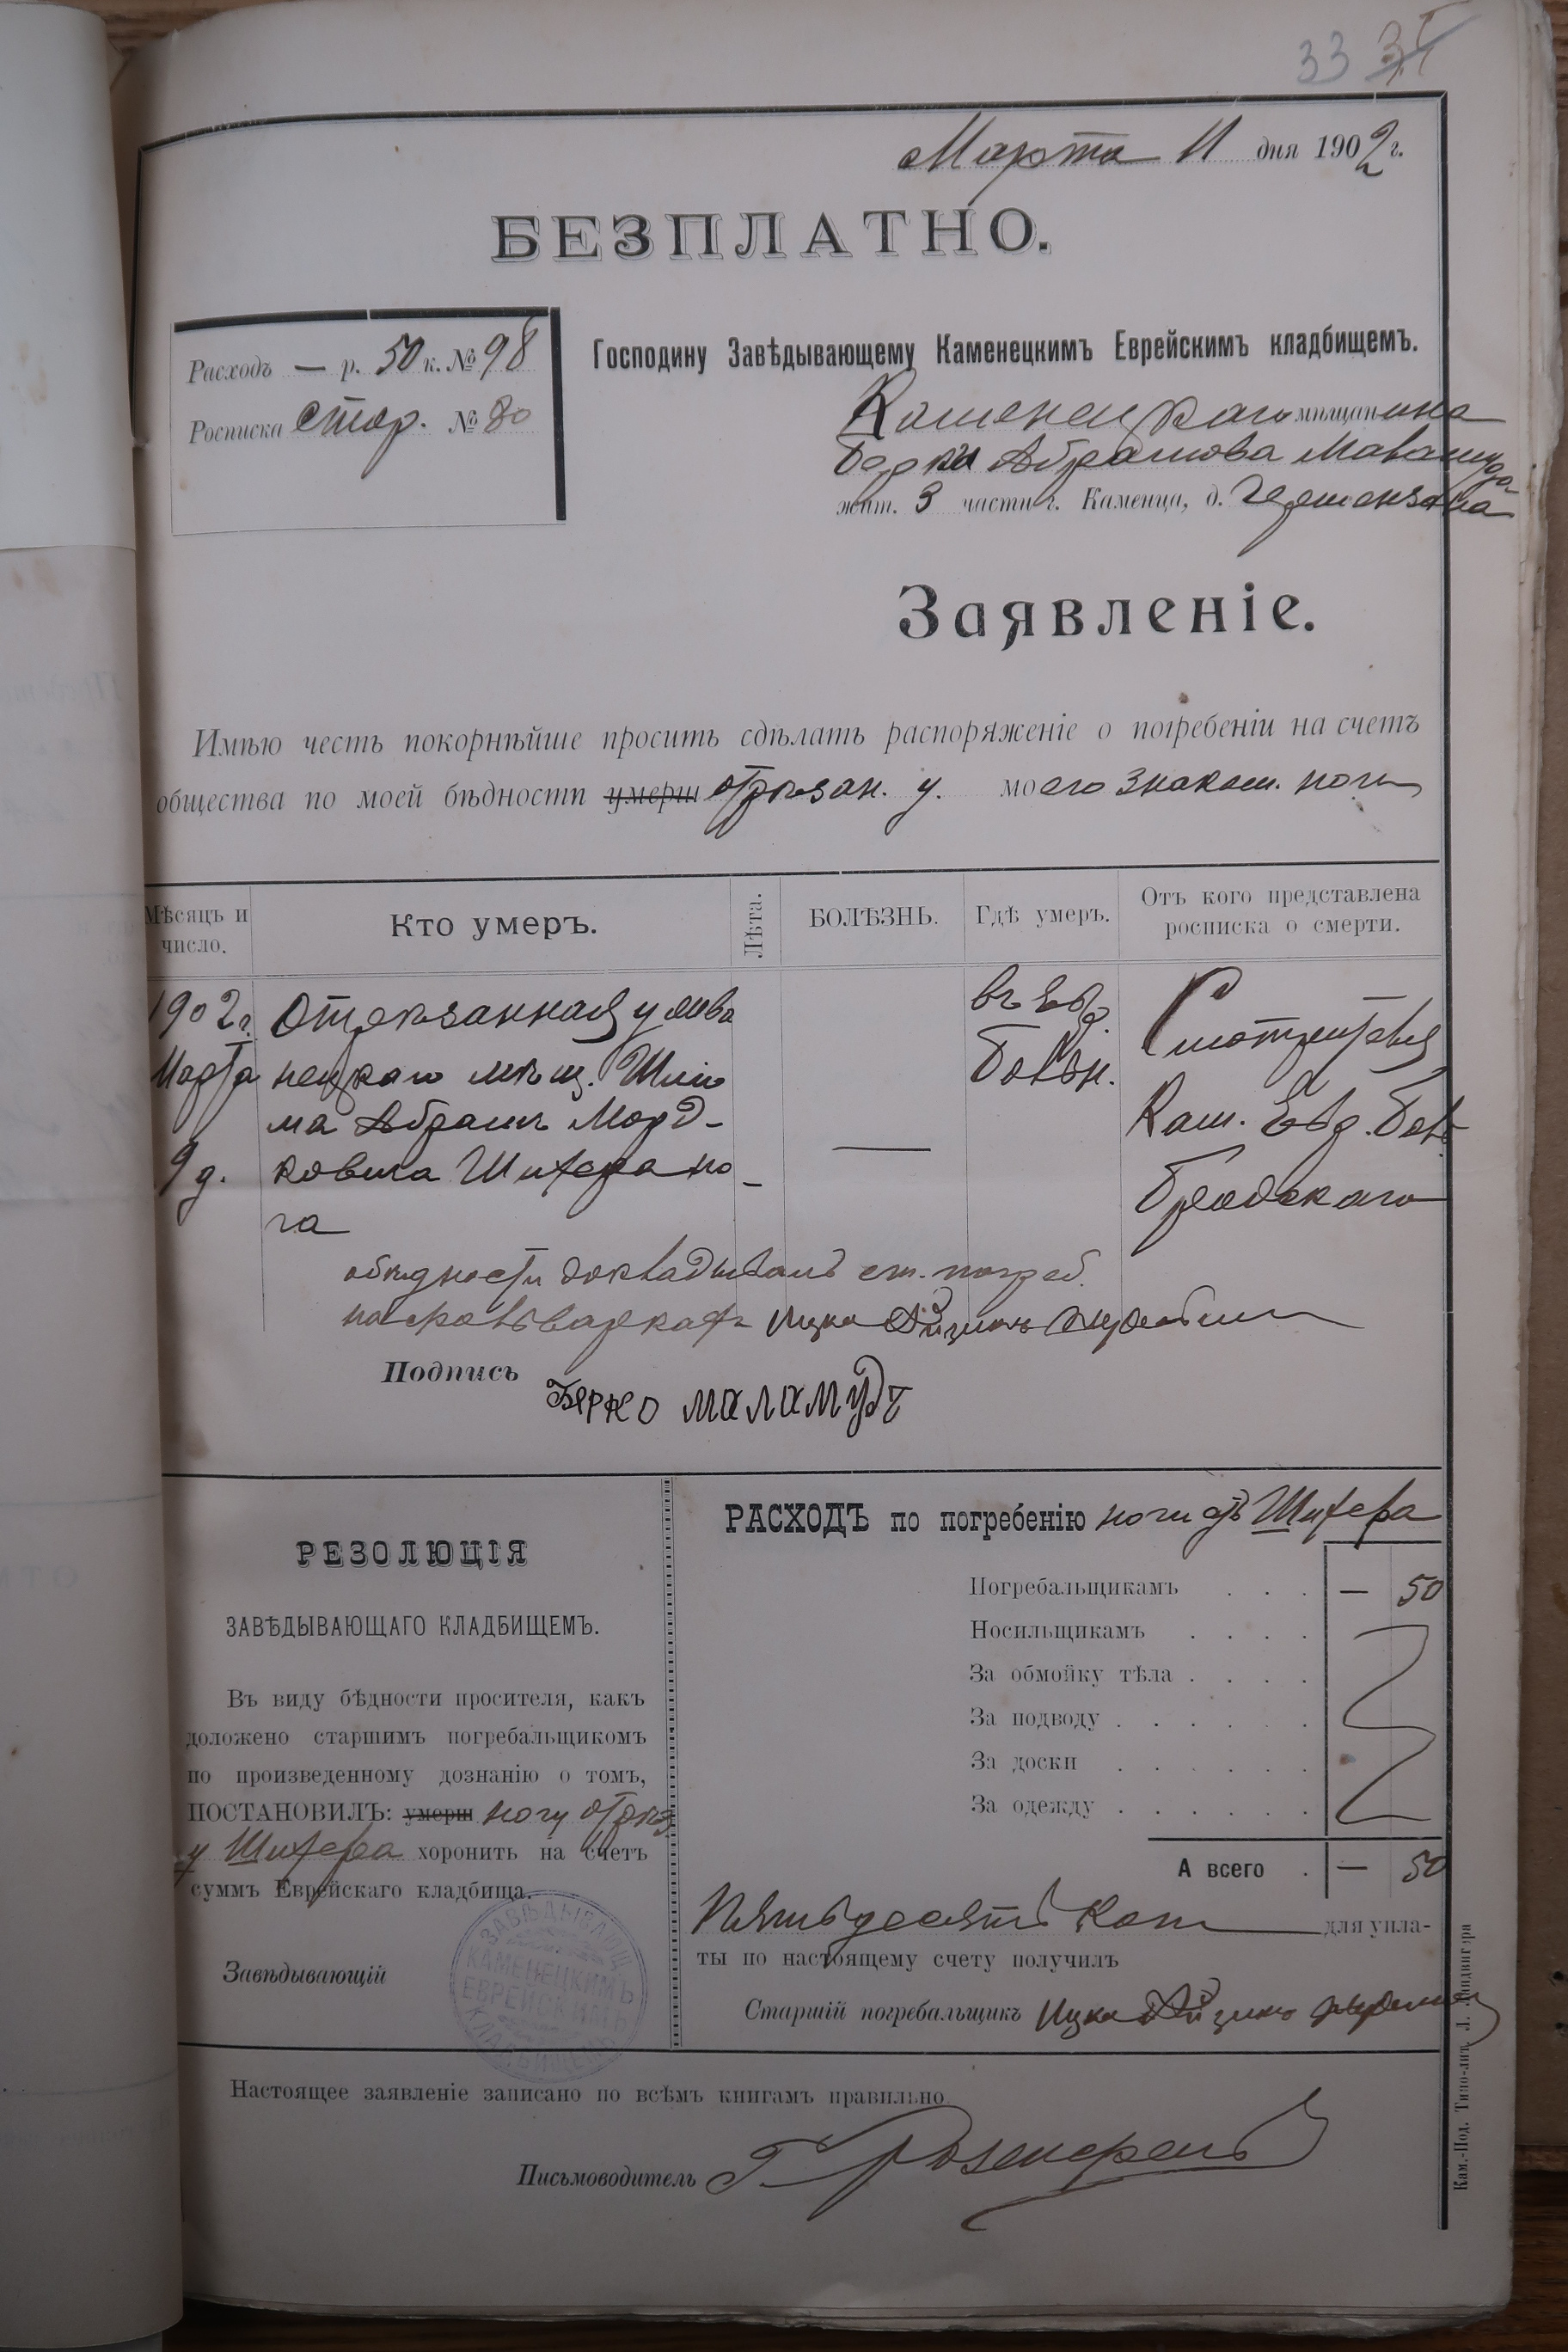 33
Марта 11 дня 1902 г.
БЕЗПЛАТНО.
Расходъ — р. 50 к. № 98
Росписка стор. № 80
Господину Завѣдывающему Каменецкимъ Еврейскимъ кладбищемъ.
Каменецкаго мѣщанина
Берки Абрамова Маламуда
жит. 3 части г. Каменца, д. Гершензона
Заявленіе.
Имѣю честь покорнѣйше просить сдѣлать распоряженіе о погребеніи на счетъ
общества по моей бѣдности умерш отрѣзан. у моего знаком. ноги
Мѣсяцъ и число.
Кто умеръ.
Лѣта.
БОЛѢЗНЬ.
Гдѣ умеръ.
Отъ кого представлена росписка о смерти.
1902 г.
Марта
9 д.
Отрѣзанная у
нецкаго мѣщ.
ма Абрамъ Морд-
ковича Шифера но-
га
—
въ Евр.
больн.
Смотрителя
Кам. Евр. Бол.
Бродскаго
обѣдности докладывалъ ст. погреб.
Ицко Айзикъ
Подпись Берко Маламудъ
РЕЗОЛЮЦІЯ
ЗАВѢДЫВАЮЩАГО КЛАДБИЩЕМЪ.
Въ виду бѣдности просителя, какъ
доложено старшимъ погребальщикомъ
по произведенному дознанію о томъ,
ПОСТАНОВИЛЪ: умерш ногу отрѣз.
у Шифера хоронить на счетъ
суммъ Еврейскаго кладбища.
Завѣдывающій
ЗАВѢДЫВАЮЩ.
КАМЕНЕЦКИМЪ
ЕВРЕЙСКИМЪ
КЛАДБИЩЕМЪ
РАСХОДЪ по погребенію ноги отъ Шифера
Погребальщикамъ . . . — 50
Носильщикамъ . . . .
За обмойку тѣла . . . .
За подводу . . . . . .
За доски . . . . . .
За одежду . . . . . .
А всего . — 50
Пятьдесятъ коп для упла-
ты по настоящему счету получилъ
Старшій погребальщикъ Ицко Айзикъ
Настоящее заявленіе записано по всѣмъ книгамъ правильно
Письмоводитель
Кам.-Под. Типо-лит. Л. Ландвигера